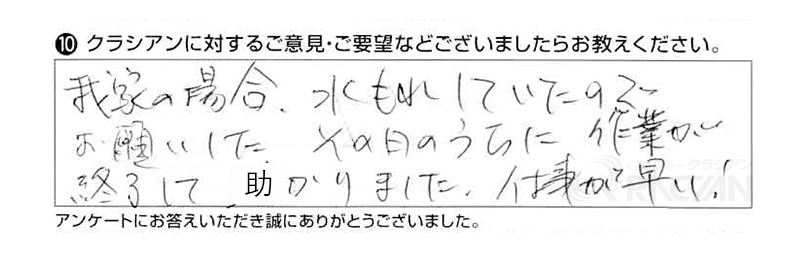 ⑩ クラシアンに対するご意見・ご要望などございましたらお教えください。
我家の場合、水もれしていたので
お願いした その日のうちに 作業が
終了して 助かりました。仕事が早い!
アンケートにお答えいただき誠にありがとうございました。